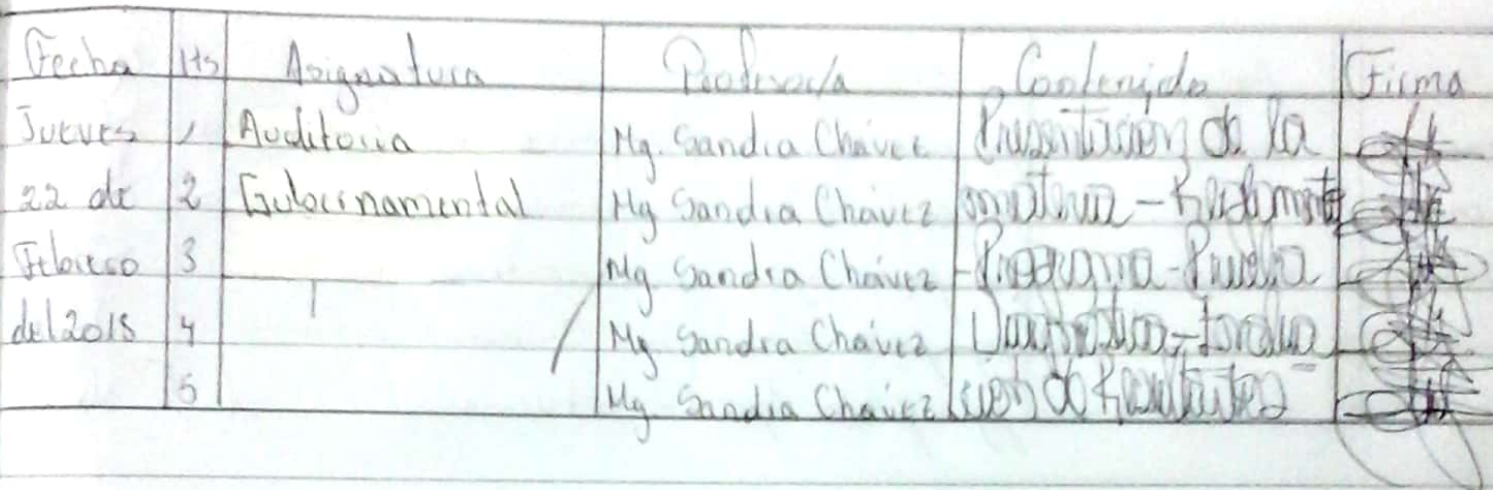 Fecha Hs Asignatura Profesor/a Contenido Firma
Jueves 1 Auditoria Mg. Sandra Chávez Presentación de la
22 de 2 Gubernamental Mg Sandra Chávez materia -
Febrero 3 Mg Sandra Chávez - Programa - Prueba
del 2018 4 Mg Sandra Chávez Diagnostica -
5 Mg Sandra Chávez de Resultados